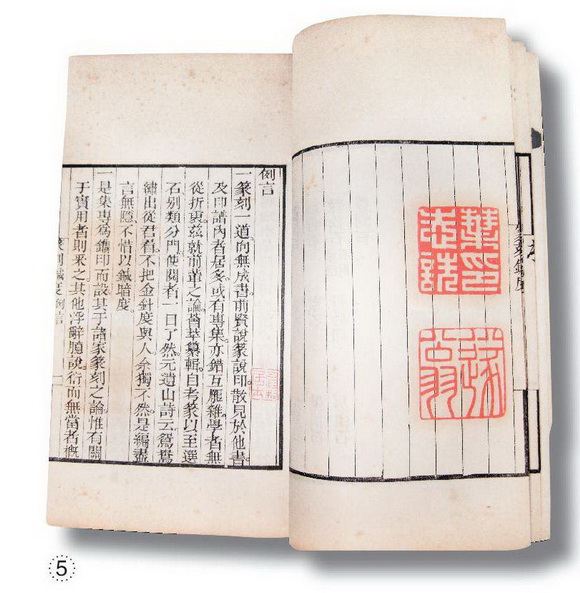 刻鍼度
葉印志詵
遂翁
例言
一篆刻一道向無成書前賢說篆說印散見於他書
及印譜內者居多或有專集亦錯互龎雜學者無
從折衷茲就前輩之論薈萃纂輯自考篆以至選
石別類分門使閱者一目了然元遺山詩云鴛鴦
繡出從君看不把金針度與人余獨不然是編盡
言無隱不惜以鍼暗度
一是集專為鐫印而設其于諸家篆刻之論惟有關
于實用者則采之其他浮辭臆說衍而無當者概
篆刻鍼度 例言 一
5